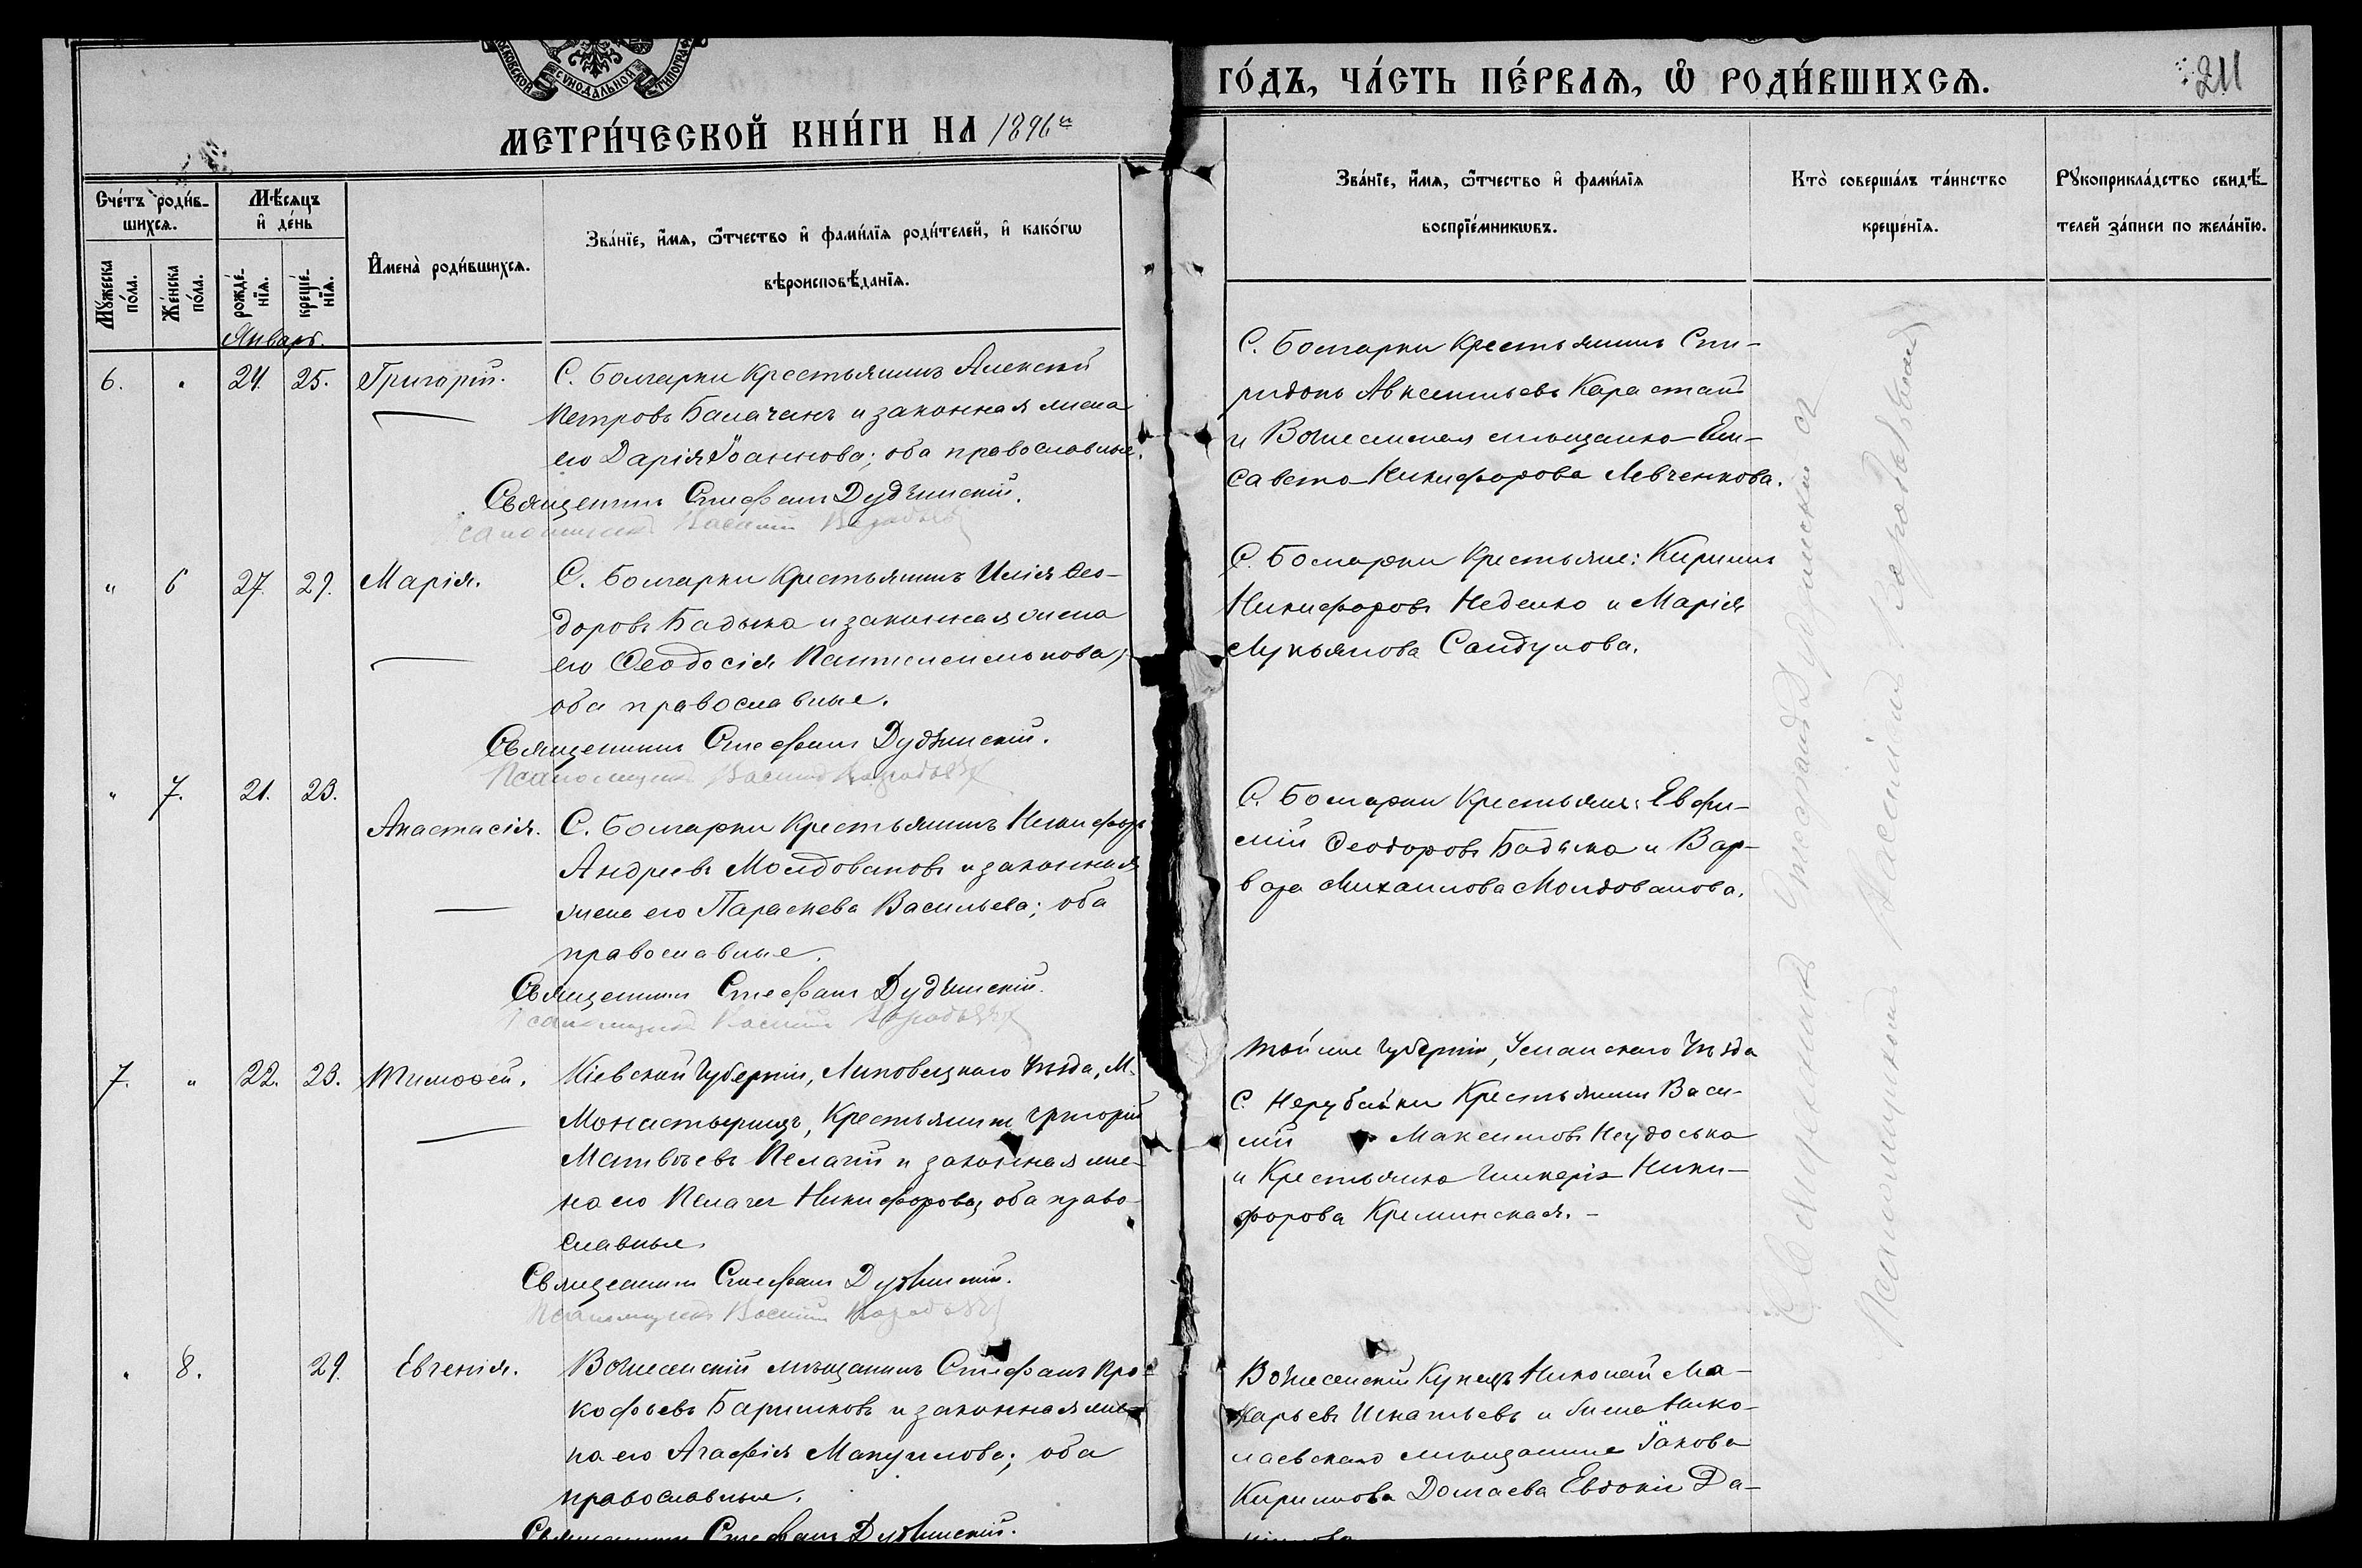 МЕТРИ́ЧЕСКОЙ КНИ́ГИ НА 1896й
ГО́ДЪ, ЧА́СТЬ ПЕ́РВАѦ, Ѡ҆ РОДИ́ВШИХСѦ.
211
Сче́тъ роди́в-
шихсѧ.
Мѣ́сѧцъ
и҆ де́нь
Мꙋ́жеска
по́ла.
Же́нска
по́ла.
рожде́-
нїѧ.
креще́-
нїѧ.
И҆мена̀ роди́вшихсѧ.
Зва́нїе, и҆́мѧ, ѻ҆́тчество и҆ фами́лїѧ роди́телей, и҆ како́гѡ
вѣроисповѣ́данїѧ.
Зва́нїе, и҆́мѧ, ѻ҆́тчество и҆ фами́лїѧ
воспрїе́мникѡвъ.
Кто̀ соверша́лъ та́инство
креще́нїѧ.
Рꙋкоприкла́дство свидѣ́-
телей за́писи по жела́нїю.
Январь.
6. " 24. 25. Григорій.
С. Болгарки Крестьянинъ Алексѣй
Петровъ Балачанъ и законная жена
его Дарія Іоаннова; оба православные.
Священникъ Стефанъ Дудзинскій.
Псаломщикъ Василій
С. Болгарки Крестьянинъ Спи-
ридонъ Авксентьевъ Карастанъ
и Вознесенская мѣщанка Ели-
савета Никифорова Левченкова.
" 6 27. 29. Марія.
С. Болгарки Крестьянинъ Илія Ѳео-
доровъ Бадыка и законная жена
его Ѳеодосія Пантелеимонова;
оба православные.
Священникъ Стефанъ Дудзинскій.
Псаломщикъ Василій
С. Болгарки Крестьяне: Кириллъ
Никифоровъ Неделко и Марія
Лукьянова Сандулова.
" 7. 21. 23.
Анастасія.
С. Болгарки Крестьянинъ Никифоръ
Андреевъ Молдовановъ и законная
жена его Параскева Васильева; оба
православные.
Священникъ Стефанъ Дудзинскій.
Псаломщикъ Василій
С. Болгарки Крестьяне: Евфи-
мій Ѳеодоровъ Бадыка и Вар-
вара Михаилова Молдованова.
7. " 22. 23. Тимоѳей.
Кіевской Губерніи, Липовецкаго Уѣзда, М.
Монастырищъ, Крестьянинъ Григорій
Матвѣевъ и законная же-
на его Пелагея Никифорова, оба право-
славные.
Священникъ Стефанъ Дудзинскій.
Псаломщикъ Василій
Той же Губерніи, Уманскаго Уѣзда
С. Нерубайки Крестьянинъ Васи-
лій Максимовъ
и Крестьянка Гликерія Ники-
форова Креминская.
" 8. 29. Евгенія.
Вознесенскій мѣщанинъ Стефанъ Про-
кофьевъ Баришковъ и законная же-
на его Агафія Мануилова; оба
православные.
Священникъ Стефанъ Дудзинскій.
Вознесенскій Купецъ Николай Ма-
карьевъ Игнатьевъ и жена Нико-
лаевскаго мѣщанина Іакова
Кириллова Евдокія Да-
Священникъ Стефанъ Дудзинскій съ
Псаломщикомъ Василіемъ